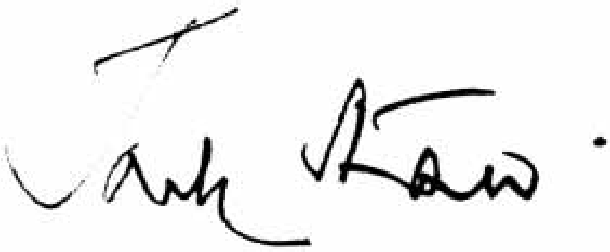 Jack Straw